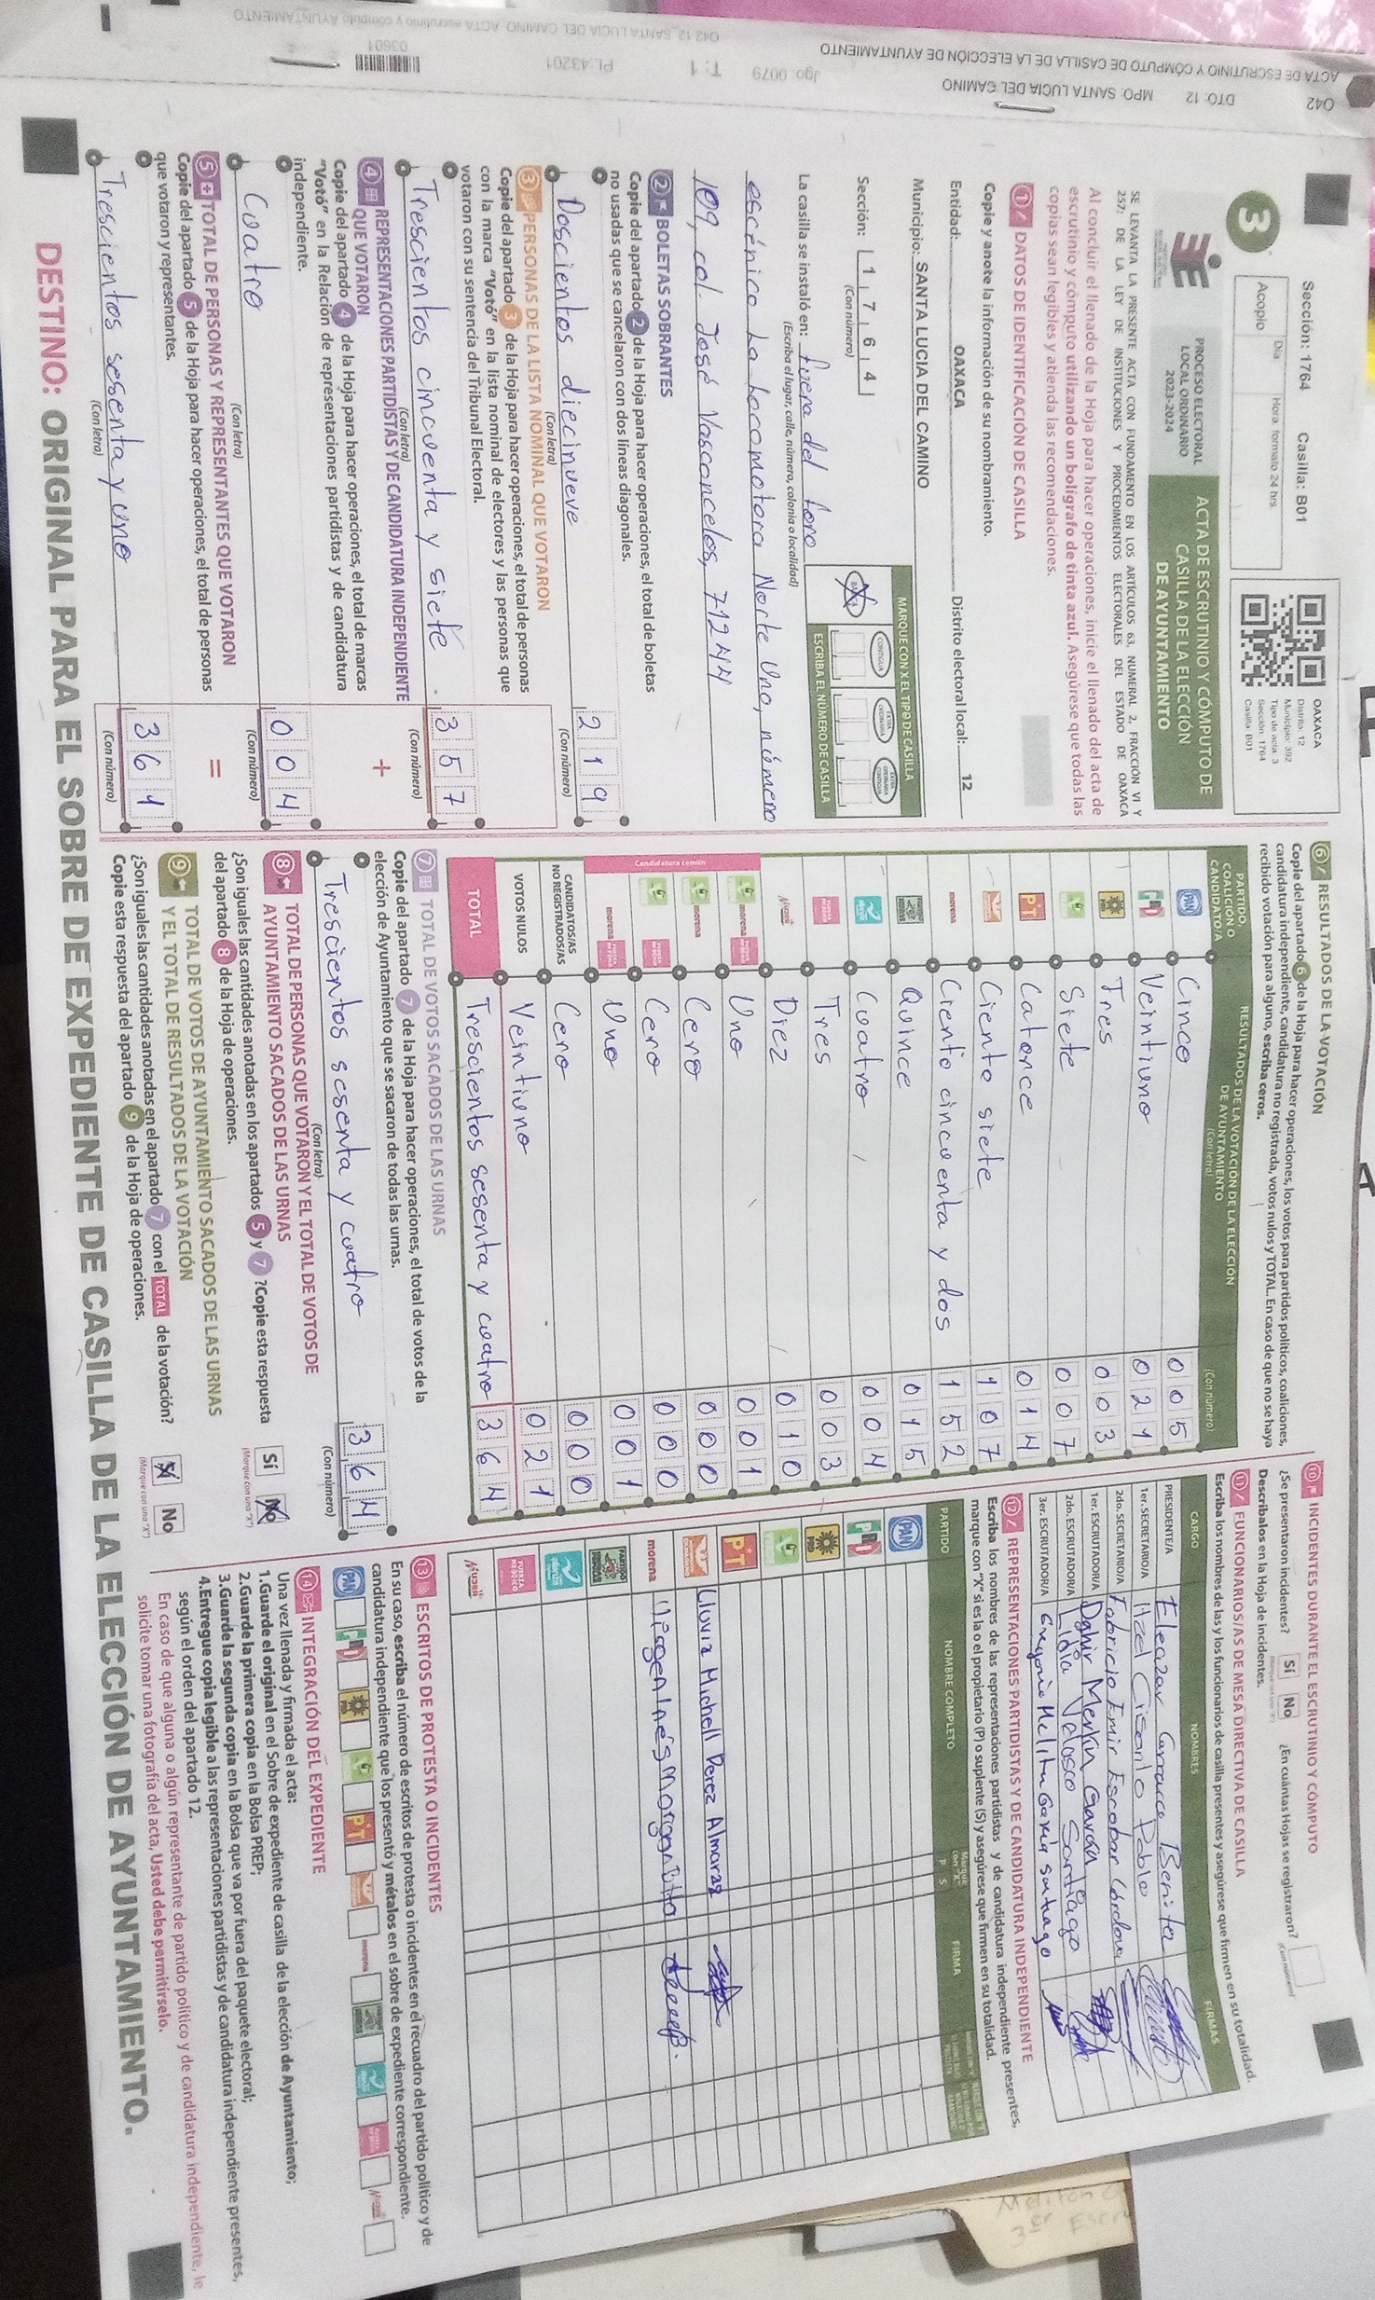 Sección: 1764 Casilla: B01
3
Acopio
Día
Hora: formato 24 hrs
OAXACA
Distrito: 12
Municipio: 392
Tipo de acta: 3
Sección: 1764
Casilla: B01
PROCESO ELECTORAL
LOCAL ORDINARIO
2023-2024
ACTA DE ESCRUTINIO Y CÓMPUTO DE
CASILLA DE LA ELECCIÓN
DE AYUNTAMIENTO
SE LEVANTA LA PRESENTE ACTA CON FUNDAMENTO EN LOS ARTÍCULOS 63, NUMERAL 2, FRACCIÓN VI Y
257; DE LA LEY DE INSTITUCIONES Y PROCEDIMIENTOS ELECTORALES DEL ESTADO DE OAXACA
Al concluir el llenado de la Hoja para hacer operaciones, inicie el llenado del acta de
escrutinio y cómputo utilizando un bolígrafo de tinta azul. Asegúrese que todas las
copias sean legibles y atienda las recomendaciones.
1 DATOS DE IDENTIFICACIÓN DE CASILLA
Copie y anote la información de su nombramiento.
Entidad: OAXACA Distrito electoral local: 12
Municipio: SANTA LUCIA DEL CAMINO
MARQUE CON X EL TIPO DE CASILLA
Sección: 1 7 6 4
(Con número)
ESCRIBA EL NÚMERO DE CASILLA
La casilla se instaló en: fuera del foro
(Escriba el lugar, calle, número, colonia o localidad)
escénico La Locomotora Norte Uno, número
109, col. José Vasconcelos, 71244
2 BOLETAS SOBRANTES
Copie del apartado 2 de la Hoja para hacer operaciones, el total de boletas
no usadas que se cancelaron con dos líneas diagonales.
Doscientos diecinueve 2 1 9
(Con letra) (Con número)
3 PERSONAS DE LA LISTA NOMINAL QUE VOTARON
Copie del apartado 3 de la Hoja para hacer operaciones, el total de personas
con la marca "Votó" en la lista nominal de electores y las personas que
votaron con su sentencia del Tribunal Electoral.
Trescientos cincuenta y siete 3 5 7
(Con letra) (Con número)
4 REPRESENTACIONES PARTIDISTAS Y DE CANDIDATURA INDEPENDIENTE
QUE VOTARON
+
Copie del apartado 4 de la Hoja para hacer operaciones, el total de marcas
"Votó" en la Relación de representaciones partidistas y de candidatura
independiente.
Cuatro 0 0 4
(Con letra) (Con número)
5 TOTAL DE PERSONAS Y REPRESENTANTES QUE VOTARON
=
Copie del apartado 5 de la Hoja para hacer operaciones, el total de personas
que votaron y representantes.
Trescientos sesenta y uno 3 6 1
(Con letra) (Con número)
6 RESULTADOS DE LA VOTACIÓN
Copie del apartado 6 de la Hoja para hacer operaciones, los votos para partidos políticos, coaliciones,
candidatura independiente, candidatura no registrada, votos nulos y TOTAL. En caso de que no se haya
recibido votación para alguno, escriba ceros.
PARTIDO,
COALICIÓN O
CANDIDATO/A
RESULTADOS DE LA VOTACIÓN DE LA ELECCIÓN
DE AYUNTAMIENTO
(Con letra) (Con número)
PAN Cinco 0 0 5
PRI Veintiuno 0 2 1
PRD Tres 0 0 3
Siete 0 0 7
PT Catorce 0 1 4
Ciento siete 1 0 7
morena Ciento cincuenta y dos 1 5 2
Quince 0 1 5
Cuatro 0 0 4
Tres 0 0 3
Diez 0 1 0
Candidatura común
morena Uno 0 0 1
morena Cero 0 0 0
Cero 0 0 0
morena Uno 0 0 1
CANDIDATOS/AS
NO REGISTRADOS/AS Cero 0 0 0
VOTOS NULOS Veintiuno 0 2 1
TOTAL Trescientos sesenta y cuatro 3 6 4
7 TOTAL DE VOTOS SACADOS DE LAS URNAS
Copie del apartado 7 de la Hoja para hacer operaciones, el total de votos de la
elección de Ayuntamiento que se sacaron de todas las urnas.
Trescientos sesenta y cuatro 3 6 4
(Con letra) (Con número)
8 TOTAL DE PERSONAS QUE VOTARON Y EL TOTAL DE VOTOS DE
AYUNTAMIENTO SACADOS DE LAS URNAS
¿Son iguales las cantidades anotadas en los apartados 5 y 7 ? Copie esta respuesta
del apartado 8 de la Hoja de operaciones.
Sí No
(Marque con una "X")
9 TOTAL DE VOTOS DE AYUNTAMIENTO SACADOS DE LAS URNAS
Y EL TOTAL DE RESULTADOS DE LA VOTACIÓN
¿Son iguales las cantidades anotadas en el apartado 7 con el TOTAL de la votación?
Copie esta respuesta del apartado 9 de la Hoja de operaciones.
Sí No
(Marque con una "X")
10 INCIDENTES DURANTE EL ESCRUTINIO Y CÓMPUTO
¿Se presentaron incidentes? Sí No ¿En cuántas Hojas se registraron?
Descríbalos en la Hoja de incidentes.
11 FUNCIONARIOS/AS DE MESA DIRECTIVA DE CASILLA
Escriba los nombres de las y los funcionarios de casilla presentes y asegúrese que firmen en su totalidad.
CARGO NOMBRES FIRMAS
PRESIDENTE/A Eleazar Carrasco Benita
1er. SECRETARIO/A
2do. SECRETARIO/A Fabricio Emir Escobar Cordova
1er. ESCRUTADOR/A
2do. ESCRUTADOR/A Lidia Velasco Santiago
3er. ESCRUTADOR/A
12 REPRESENTACIONES PARTIDISTAS Y DE CANDIDATURA INDEPENDIENTE
Escriba los nombres de las representaciones partidistas y de candidatura independiente presentes,
marque con "X" si es la o el propietario (P) o suplente (S) y asegúrese que firmen en su totalidad.
PARTIDO NOMBRE COMPLETO P S FIRMA
PAN
PRI
PRD
PT
Lluvia Michell Perez Almaraz
morena
13 ESCRITOS DE PROTESTA O INCIDENTES
En su caso, escriba el número de escritos de protesta o incidentes en el recuadro del partido político y de
candidatura independiente que los presentó y métalos en el sobre de expediente correspondiente.
14 INTEGRACIÓN DEL EXPEDIENTE
Una vez llenada y firmada el acta:
1.Guarde el original en el Sobre de expediente de casilla de la elección de Ayuntamiento;
2.Guarde la primera copia en la Bolsa PREP;
3.Guarde la segunda copia en la Bolsa que va por fuera del paquete electoral;
4.Entregue copia legible a las representaciones partidistas y de candidatura independiente presentes,
según el orden del apartado 12.
En caso de que alguna o algún representante de partido político y de candidatura independiente, le
solicite tomar una fotografía del acta, Usted debe permitírselo.
DESTINO: ORIGINAL PARA EL SOBRE DE EXPEDIENTE DE CASILLA DE LA ELECCIÓN DE AYUNTAMIENTO.
ACTA DE ESCRUTINIO Y CÓMPUTO DE CASILLA DE LA ELECCIÓN DE AYUNTAMIENTO
042 DTO. 12 MPO. SANTA LUCIA DEL CAMINO
Jgo. 0079 T: 1 PL-43201
042 12 SANTA LUCIA DEL CAMINO ACTA escrutinio y cómputo AYUNTAMIENTO
03601
3er Escru